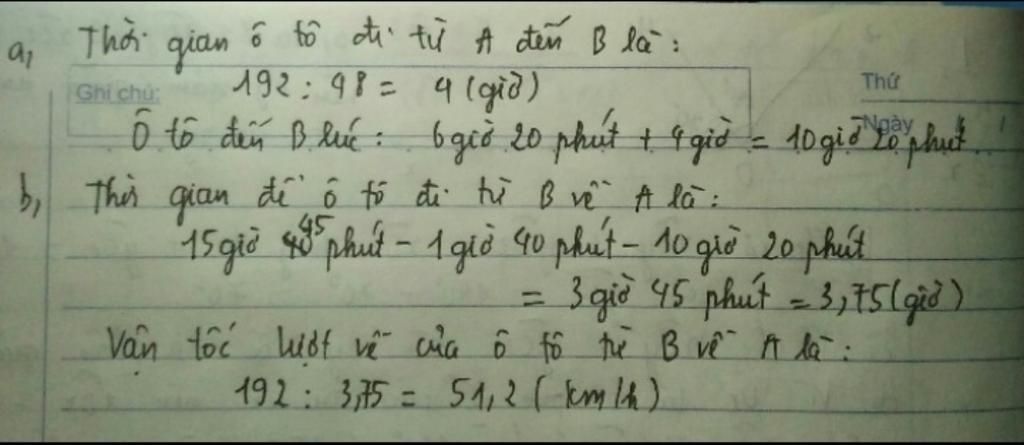 a, Thời gian ô tô đi từ A đến B là:
Thứ
Ghi chú: 192 : 48 = 4 (giờ)
Ngày
Ô tô đến B lúc: 6giờ 20 phút + 4giờ = 10giờ 20 phút
b, Thời gian để ô tô đi từ B về A là:
15giờ 45 phút - 1giờ 40 phút - 10giờ 20 phút
= 3giờ 45 phút = 3,75(giờ)
Vận tốc lượt về của ô tô từ B về A là:
192 : 3,75 = 51,2 (km/h)